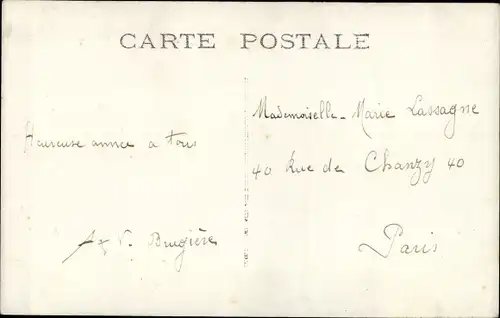 CARTE POSTALE
Heureuse année a tous
A & V. Brugière
Mademoiselle - Marie Lassagne
40 Rue de Chanzy 40
Paris